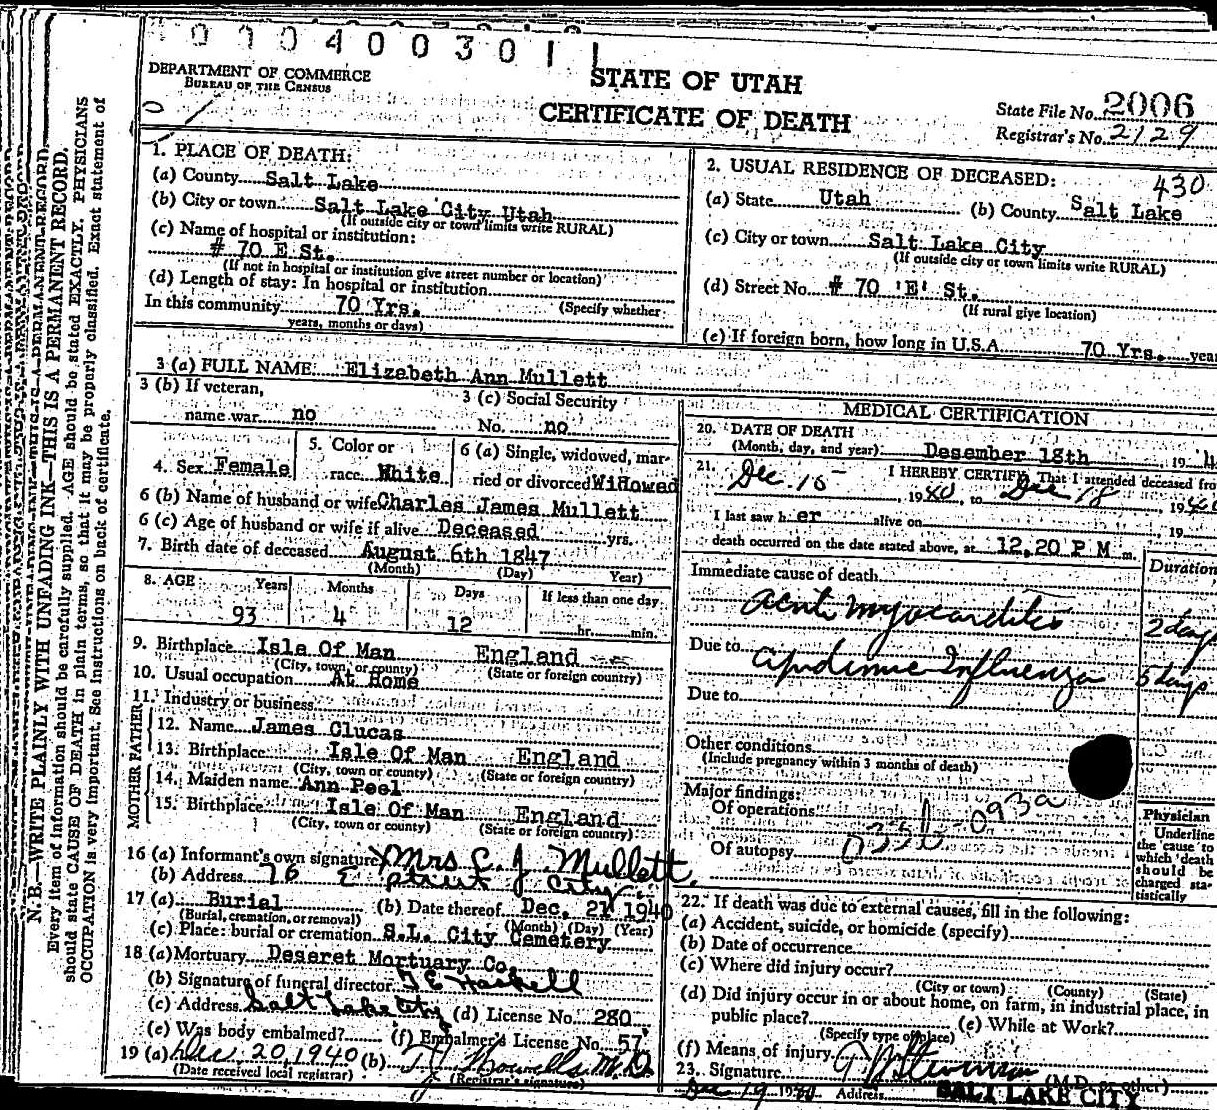 0 0 0 4 0 0 3 0 1 1
DEPARTMENT OF COMMERCE
BUREAU OF THE CENSUS
STATE OF UTAH
CERTIFICATE OF DEATH
State File No. 2006
Registrar's No. 2129
N. B.—WRITE PLAINLY WITH UNFADING INK—THIS IS A PERMANENT RECORD.
Every item of information should be carefully supplied. AGE should be stated EXACTLY. PHYSICIANS
should state CAUSE OF DEATH in plain terms, so that it may be properly classified. Exact statement of
OCCUPATION is very important. See instructions on back of certificate.
1. PLACE OF DEATH:
(a) County Salt Lake
(b) City or town Salt Lake City Utah
(If outside city or town limits write RURAL)
(c) Name of hospital or institution:
# 70 E St.
(If not in hospital or institution give street number or location)
(d) Length of stay: In hospital or institution
In this community 70 Yrs. (Specify whether
years, months or days)
2. USUAL RESIDENCE OF DECEASED:
430
(a) State Utah (b) County Salt Lake
(c) City or town Salt Lake City
(If outside city or town limits write RURAL)
(d) Street No. # 70 'E' St.
(If rural give location)
(e) If foreign born, how long in U.S.A. 70 Yrs. year
3 (a) FULL NAME: Elizabeth Ann Mullett
3 (b) If veteran,
name war no
3 (c) Social Security
No. no
4. Sex Female
5. Color or
race White
6 (a) Single, widowed, mar-
ried or divorced Widowed
6 (b) Name of husband or wife Charles James Mullett
6 (c) Age of husband or wife if alive Deceased yrs.
7. Birth date of deceased August 6th 1847
(Month) (Day) Year)
8. AGE Years Months Days If less than one day
93 4 12 hr. min.
9. Birthplace Isle Of Man England
(City, town, or county) (State or foreign country)
10. Usual occupation At Home
11. Industry or business
FATHER
12. Name James Clucas
13. Birthplace Isle Of Man England
(City, town or county) (State or foreign country)
MOTHER
14. Maiden name Ann Peel
15. Birthplace Isle Of Man England
(City, town or county) (State or foreign country)
16 (a) Informant's own signature X Mrs C. J. Mullett.
(b) Address 76 E street City
17 (a) Burial (b) Date thereof Dec. 21 1940
(Burial, cremation, or removal) (Month) (Day) (Year)
(c) Place: burial or cremation S.L. City Cemetery
18 (a) Mortuary Deseret Mortuary Co.
(b) Signature of funeral director
(c) Address Salt Lake City (d) License No. 280
(e) Was body embalmed? (f) Embalmer's License No. 57
19 (a) Dec. 20, 1940 (b) M.D.
(Date received local registrar) (Registrar's signature)
MEDICAL CERTIFICATION
20. DATE OF DEATH
(Month, day, and year): Desember 18th, 19 4
21. I HEREBY CERTIFY, That I attended deceased fro
Dec. 15, 1940, to Dec 18, 1940
I last saw h er alive on , 19
death occurred on the date stated above, at 12,20 P M m.
Duration
Immediate cause of death
Acute Myocarditis 2 days
Due to Epidemic Influenza 5 days
Due to
Other conditions
(Include pregnancy within 3 months of death)
Major findings:
Of operations
093a
Of autopsy
Physician
Underline
the cause to
which death
should be
charged sta-
tistically
22. If death was due to external causes, fill in the following:
(a) Accident, suicide, or homicide (specify)
(b) Date of occurrence
(c) Where did injury occur?
(City or town) (County) (State)
(d) Did injury occur in or about home, on farm, in industrial place, in
public place? (e) While at Work?
(Specify type of place)
(f) Means of injury
23. Signature (M.D. or other)
Dec 19 1940 Address SALT LAKE CITY